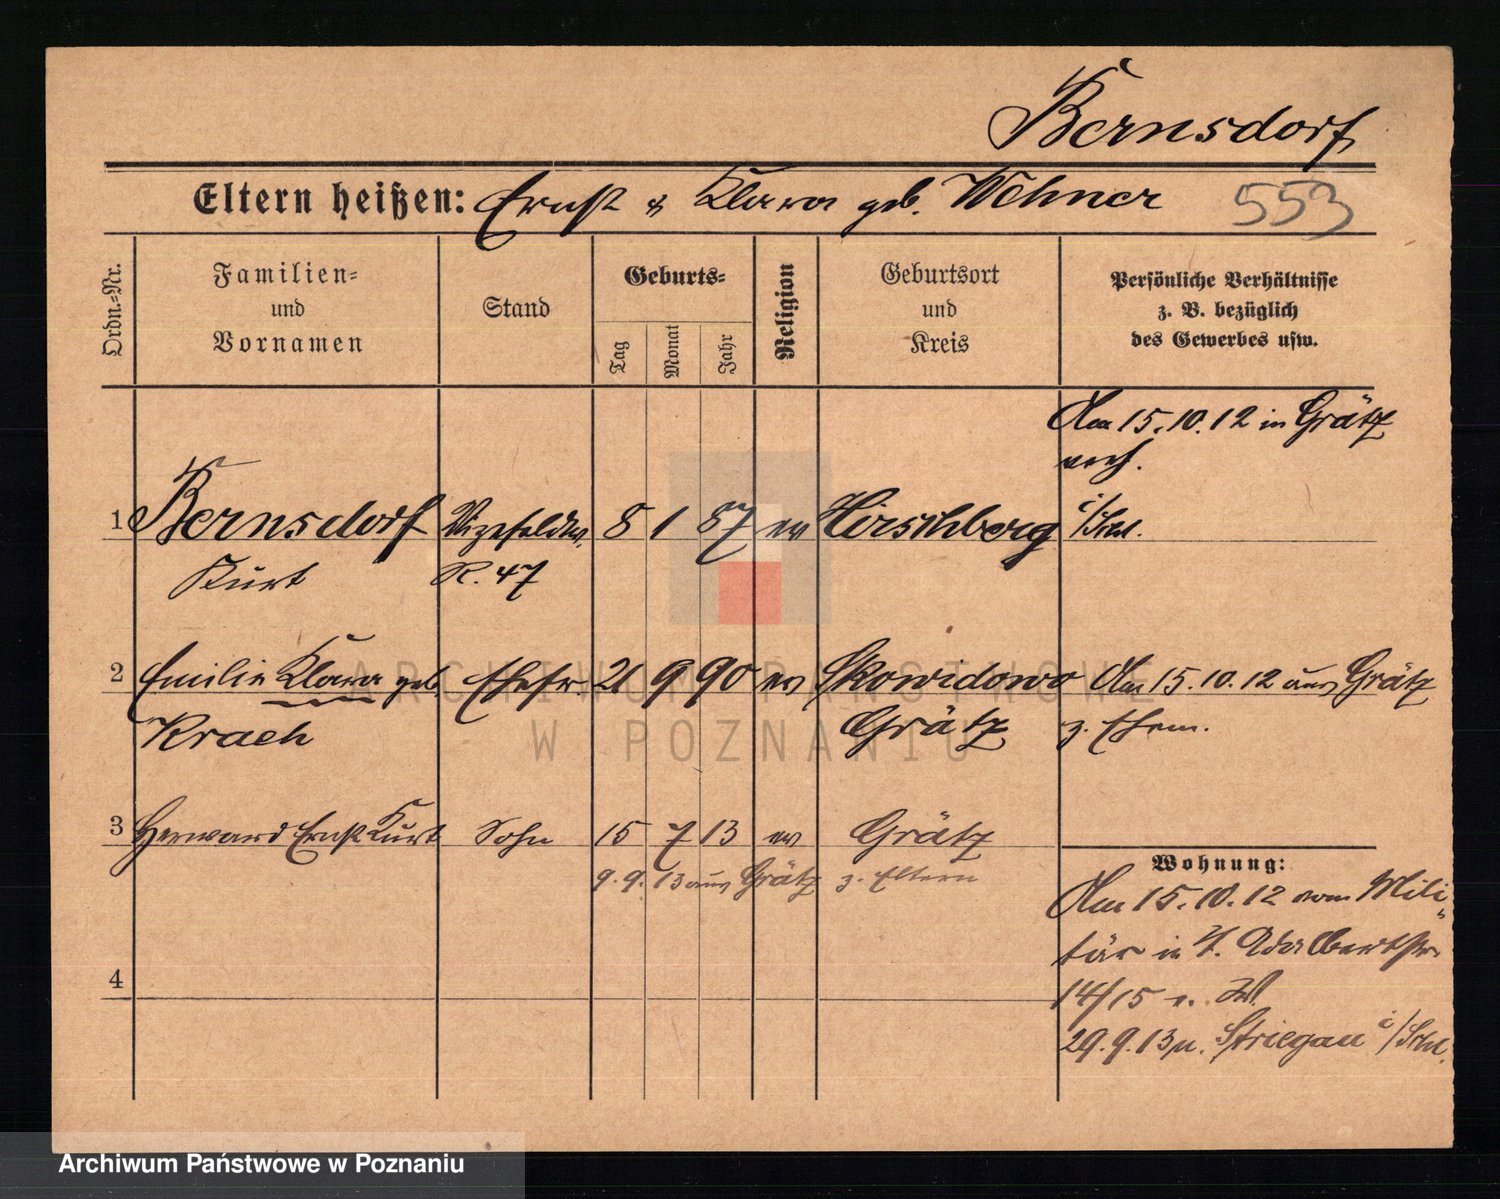 Bernsdorf
Eltern heißen: Ernst & Klara geb. Wehner 553
Ordn.-Nr.
Familien-
und
Vornamen
Stand
Geburts-
Tag
Monat
Jahr
Religion
Geburtsort
und
Kreis
Persönliche Verhältnisse
z. B. bezüglich
des Gewerbes usw.
Am 15.10.12 in Grätz
verh.
1 Bernsdorf Vizefeldw. 8 1 87 ev Hirschberg i/Schl.
Kurt R. 47
2 Emilie Klara geb. Ehefr 21 9 90 ev Skowidowo Am 15.10.12 aus Grätz
Krach Grätz z. Ehem.
3 Herward Ernst Kurt Sohn 15 7 13 ev Grätz
9.9.13 aus Grätz z. Eltern
Wohnung:
Am 15.10.12 vom Mili
tär in Adalbertstr.
14/15
4
29.9.13 n. Striegau i/Schl.
ARCHIWUM PAŃSTWOWE
W POZNANIU
Archiwum Państwowe w Poznaniu